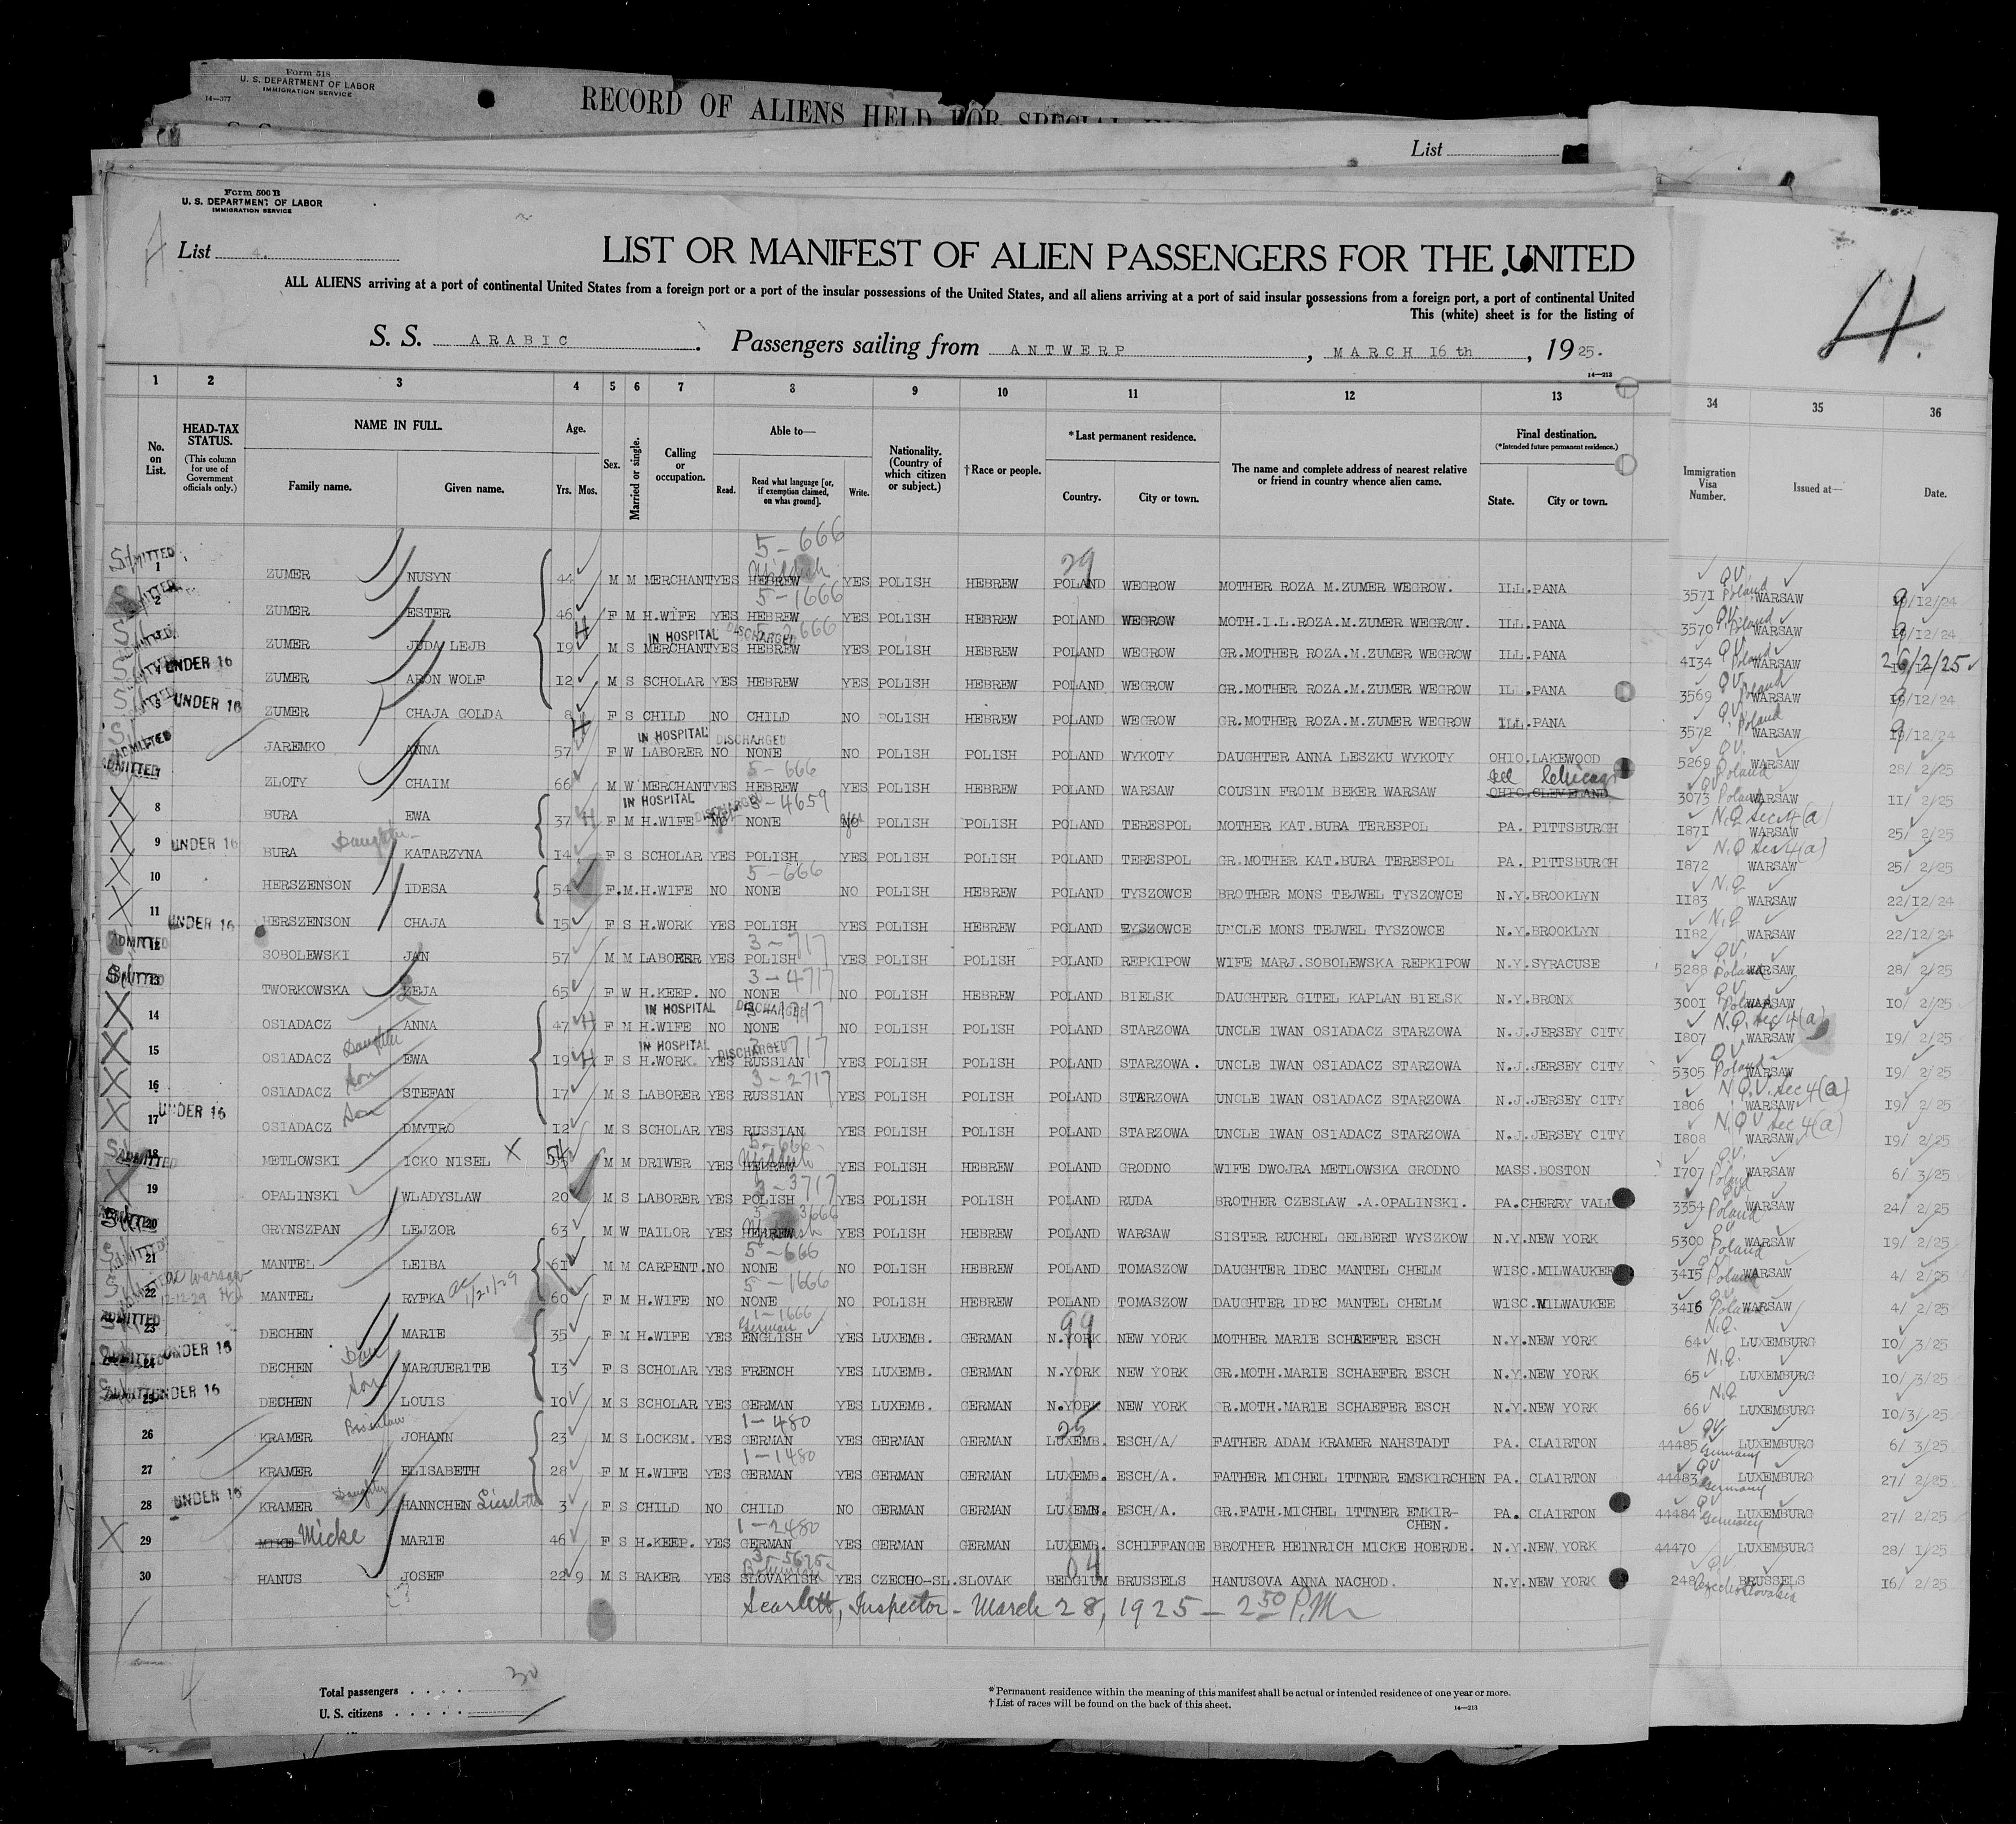 Form 518
U. S. DEPARTMENT OF LABOR
IMMIGRATION SERVICE
14—377
RECORD OF ALIENS HELD FOR SPECIAL
List
Form 500 B
U. S. DEPARTMENT OF LABOR
IMMIGRATION SERVICE
List 4.
LIST OR MANIFEST OF ALIEN PASSENGERS FOR THE UNITED
ALL ALIENS arriving at a port of continental United States from a foreign port or a port of the insular possessions of the United States, and all aliens arriving at a port of said insular possessions from a foreign port, a port of continental United
This (white) sheet is for the listing of
4.
S. S. ARABIC. Passengers sailing from ANTWERP, MARCH 16 th, 1925.
14—213
1 2 3 4 5 6 7 8 9 10 11 12 13 34 35 36
No. on List. HEAD-TAX STATUS. (This column for use of Government officials only.) NAME IN FULL. Family name. Given name. Age. Yrs. Mos. Sex. Married or single. Calling or occupation. Able to— Read. Read what language [or, if exemption claimed, on what ground]. Write. Nationality. (Country of which citizen or subject.) †Race or people. *Last permanent residence. Country. City or town. The name and complete address of nearest relative or friend in country whence alien came. Final destination. (*Intended future permanent residence.) State. City or town. Immigration Visa Number. Issued at— Date.
5-666
29
1 ZUMER NUSYN 44 M M MERCHANT YES HEBREW Yiddish YES POLISH HEBREW POLAND WEGROW MOTHER ROZA M.ZUMER WEGROW. ILL. PANA 3571 QV Poland WARSAW /12/24
5-1666
2 ZUMER ESTER 46 F M H.WIFE YES HEBREW YES POLISH HEBREW POLAND WEGROW MOTH.I.L.ROZA.M.ZUMER WEGROW. ILL. PANA 3570 QV Poland WARSAW /12/24
IN HOSPITAL DISCHARGED
3 ZUMER JUDA LEJB 19 M S MERCHANT YES HEBREW YES POLISH HEBREW POLAND WEGROW GR.MOTHER ROZA.M.ZUMER WEGROW ILL. PANA 4134 QV Poland WARSAW 26/2/25
4 UNDER 16 ZUMER ARON WOLF 12 M S SCHOLAR YES HEBREW YES POLISH HEBREW POLAND WEGROW GR.MOTHER ROZA.M.ZUMER WEGROW ILL. PANA 3569 QV Poland WARSAW /12/24
5 UNDER 16 ZUMER CHAJA GOLDA 8 F S CHILD NO CHILD NO POLISH HEBREW POLAND WEGROW GR.MOTHER ROZA.M.ZUMER WEGROW ILL. PANA 3572 QV Poland WARSAW /12/24
IN HOSPITAL DISCHARGED
ADMITTED JAREMKO ANNA 57 F W LABORER NO NONE NO POLISH POLISH POLAND WYKOTY DAUGHTER ANNA LESZKU WYKOTY OHIO. LAKEWOOD 5269 QV Poland WARSAW 28/ 2/25
5-666
Ill Chicago
ADMITTED 7 ZLOTY CHAIM 66 M W MERCHANT YES HEBREW YES POLISH HEBREW POLAND WARSAW COUSIN FROIM BEKER WARSAW OHIO. CLEVELAND 3073 QV Poland WARSAW 11/ 2/25
IN HOSPITAL DISCHARGED 3-4659
8 BURA EWA 37 F M H.WIFE NO NONE NO yes POLISH POLISH POLAND TERESPOL MOTHER KAT.BURA TERESPOL PA. PITTSBURGH 1871 N.Q. Sec 4(a) WARSAW 25/ 2/25
9 UNDER 16 BURA Daughter KATARZYNA 14 F S SCHOLAR YES POLISH YES POLISH POLISH POLAND TERESPOL GR.MOTHER KAT.BURA TERESPOL PA. PITTSBURGH 1872 N.Q Sec 4(a) WARSAW 25/ 2/25
5-666
10 HERSZENSON IDESA 54 F. M. H.WIFE NO NONE NO POLISH HEBREW POLAND TYSZOWCE BROTHER MONS TEJWEL TYSZOWCE N.Y. BROOKLYN 1183 N.Q WARSAW 22/12/24
11 UNDER 16 HERSZENSON CHAJA 15 F S H.WORK YES POLISH YES POLISH HEBREW POLAND TYSZOWCE UNCLE MONS TEJWEL TYSZOWCE N.Y. BROOKLYN 1182 N.Q WARSAW 22/12/24
3-717
ADMITTED 12 SOBOLEWSKI JAN 57 M M LABORER YES POLISH YES POLISH POLISH POLAND REPKIPOW WIFE MARJ.SOBOLEWSKA REPKIPOW N.Y. SYRACUSE 5288 QV Poland WARSAW 28/ 2/25
3-4717
13 TWORKOWSKA ZEJA 65 F W H.KEEP. NO NONE NO POLISH HEBREW POLAND BIELSK DAUGHTER GITEL KAPLAN BIELSK N.Y. BRONX 3001 QV Poland WARSAW 10/ 2/25
IN HOSPITAL DISCHARGED
14 OSIADACZ ANNA 47 F M H.WIFE NO NONE NO POLISH POLISH POLAND STARZOWA UNCLE IWAN OSIADACZ STARZOWA N.J. JERSEY CITY 1807 N.Q. Sec 4(a) WARSAW 19/ 2/25
IN HOSPITAL DISCHARGED
15 OSIADACZ Daughter EWA 19 F S H.WORK. YES RUSSIAN YES POLISH POLISH POLAND STARZOWA. UNCLE IWAN OSIADACZ STARZOWA N.J. JERSEY CITY 5305 QV Poland WARSAW 19/ 2/25
3-2717
16 OSIADACZ Son STEFAN 17 M S LABORER YES RUSSIAN YES POLISH POLISH POLAND STARZOWA UNCLE IWAN OSIADACZ STARZOWA N.J. JERSEY CITY 1806 N.Q.V. Sec 4(a) WARSAW 19/ 2/25
17 UNDER 16 OSIADACZ Son DMYTRO 12 M S SCHOLAR YES RUSSIAN YES POLISH POLISH POLAND STARZOWA UNCLE IWAN OSIADACZ STARZOWA N.J. JERSEY CITY 1808 N.Q V Sec 4(a) WARSAW 19/ 2/25
5-666
ADMITTED 18 METLOWSKI ICKO NISEL X 54 M M DRIWER YES HEBREW Yiddish YES POLISH HEBREW POLAND GRODNO WIFE DWOJRA METLOWSKA GRODNO MASS. BOSTON 1707 QV Poland WARSAW 6/ 3/25
3-3717
19 OPALINSKI WLADYSLAW 20 M S LABORER YES POLISH YES POLISH POLISH POLAND RUDA BROTHER CZESLAW .A.OPALINSKI. PA. CHERRY VALL 3354 QV Poland WARSAW 24/ 2/25
5-3666
20 GRYNSZPAN LEJZOR 63 M W TAILOR YES HEBREW Yiddish YES POLISH HEBREW POLAND WARSAW SISTER RUCHEL GELBERT WYSZKOW N.Y. NEW YORK 5300 QV Poland WARSAW 19/ 2/25
5-666
21 MANTEL LEIBA 61 M M CARPENT. NO NONE NO POLISH HEBREW POLAND TOMASZOW DAUGHTER IDEC MANTEL CHELM WISC. MILWAUKEE 3415 QV Poland WARSAW 4/ 2/25
5-1666
22 Warsaw 12-12-29 MANTEL RYFKA 1/21/29 60 F M H.WIFE NO NONE NO POLISH HEBREW POLAND TOMASZOW DAUGHTER IDEC MANTEL CHELM WISC. MILWAUKEE 3416 QV Poland WARSAW 4/ 2/25
1-1666 99
ADMITTED 23 DECHEN MARIE 35 F M H.WIFE YES ENGLISH German YES LUXEMB. GERMAN N.YORK NEW YORK MOTHER MARIE SCHAEFER ESCH N.Y. NEW YORK 64 N.Q. LUXEMBURG 10/ 3/25
ADMITTED 24 UNDER 16 DECHEN Dau MARGUERITE 13 F S SCHOLAR YES FRENCH YES LUXEMB. GERMAN N.YORK NEW YORK GR.MOTH.MARIE SCHAEFER ESCH N.Y. NEW YORK 65 N.Q. LUXEMBURG 10/ 3/25
ADMITTED 25 UNDER 16 DECHEN Son LOUIS 10 M S SCHOLAR YES GERMAN YES LUXEMB. GERMAN N.YORK NEW YORK GR.MOTH.MARIE SCHAEFER ESCH N.Y. NEW YORK 66 N.Q LUXEMBURG 10/3/ 25
1-480 25
26 KRAMER JOHANN 23 M S LOCKSM. YES GERMAN YES GERMAN GERMAN LUXEMB. ESCH/A/ FATHER ADAM KRAMER NAHSTADT PA. CLAIRTON 44485 QV Germany LUXEMBURG 6/ 3/25
1-1480
27 KRAMER ELISABETH 28 F M H.WIFE YES GERMAN YES GERMAN GERMAN LUXEMB. ESCH/A. FATHER MICHEL ITTNER EMSKIRCHEN PA. CLAIRTON 44483 QV Germany LUXEMBURG 27/ 2/25
28 UNDER 16 KRAMER Daughter HANNCHEN Lieselotte 3 F S CHILD NO CHILD NO GERMAN GERMAN LUXEMB. ESCH/A. GR.FATH.MICHEL ITTNER EMKIR-CHEN. PA. CLAIRTON 44484 QV Germany LUXEMBURG 27/ 2/25
1-2480
29 MIKE Micke MARIE 46 F S H.KEEP. YES GERMAN YES GERMAN GERMAN LUXEMB. SCHIFFANGE BROTHER HEINRICH MICKE HOERDE. N.Y. NEW YORK 44470 LUXEMBURG 28/ 1/25
04
30 HANUS JOSEF 22 9 M S BAKER YES SLOVAKISH Bohemian YES CZECHO-SL. SLOVAK BELGIUM BRUSSELS HANUSOVA ANNA NACHOD. N.Y. NEW YORK 248 QV Czechoslovakia BRUSSELS 16/ 2/25
Scarlett, Inspector - March 28, 1925 - 2 50 P.M
Total passengers . . . . 30
U. S. citizens . . . . .
*Permanent residence within the meaning of this manifest shall be actual or intended residence of one year or more.
†List of races will be found on the back of this sheet.
14—213